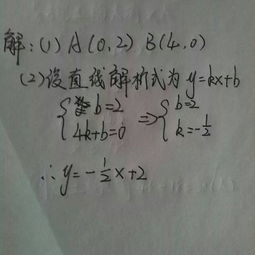 解:(1) A(0,2) B(4,0)
(2)设直线解析式为 y=kx+b
{b=2 ⇒ {b=2
{4k+b=0 {k=-1/2
∴y=-1/2x+2